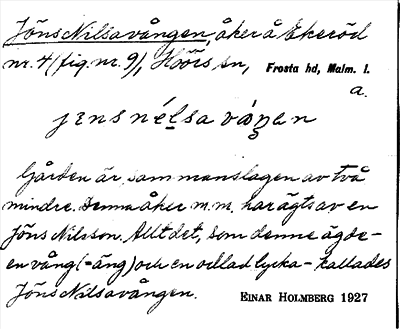 Jöns Nilsavången, åker å Ekeröd
nr. 4 (fig. nr. 9), Höörs sn, Frosta hd, Malm. l.
a.
jens nélsa váŋen
Gården är sammanslagen av två
mindre. Denna åker m.m. har ägts av en
Jöns Nilsson. Allt det, som denne ägde -
en vång (= äng) och en odlad lycka - kallades
Jöns Nilsavången. EINAR HOLMBERG 1927